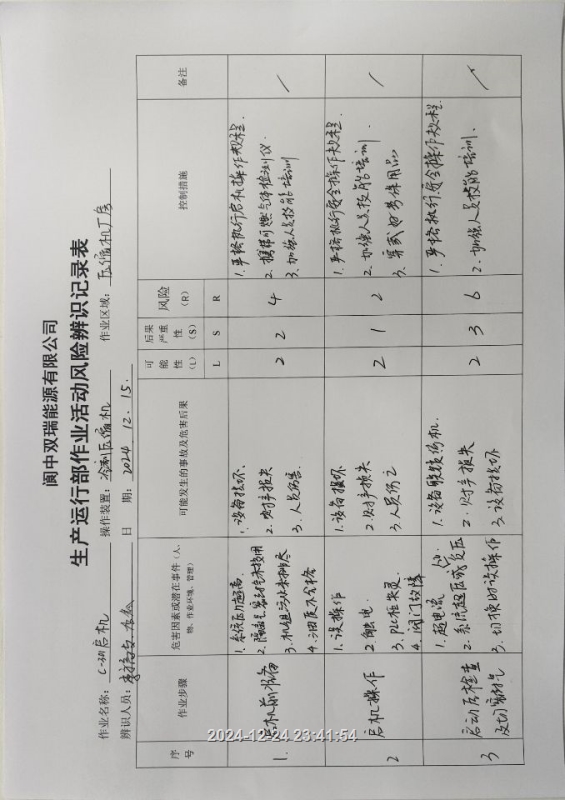 阆中双瑞能源有限公司
生产运行部作业活动风险辨识记录表
作业名称: C-301启机 操作装置: 冷剂压缩机 作业区域: 压缩机厂房
辨识人员: 日 期: 2024.12.15.
序号 作业步骤 危害因素或潜在事件(人、物、作业环境、管理) 可能发生的事故及危害后果 可能性(L) 后果严重性(S) 风险(R) 控制措施 备注
L S R
1. 启机前准备
1.系统压力超高.
2.隔离气、密封气未投用
3.机组污油未排尽
4.油质不合格
1.设备损坏.
2.财产损失
3.人员伤害.
2 2 4
1.严格执行启机操作规程.
2.携带可燃气体检测仪.
3.加强人员技能培训
/
2 启机操作
1.误操作
2.触电.
3.PLC柜失灵.
4.阀门故障
1.设备损坏
2.财产损失
3.人员伤亡
2 1 2
1.严格执行安全操作规程.
2.加强人员技能培训.
3.穿戴好劳保用品
/
3 启动后检查及切密封气
1.超电流
2.系统超压或负压
3.切换时误操作
1.设备联锁停机.
2.财产损失
3.设备损坏
2 3 6
1.严格执行安全操作规程
2.加强人员技能培训.
/
2024-12-24 23:41:54